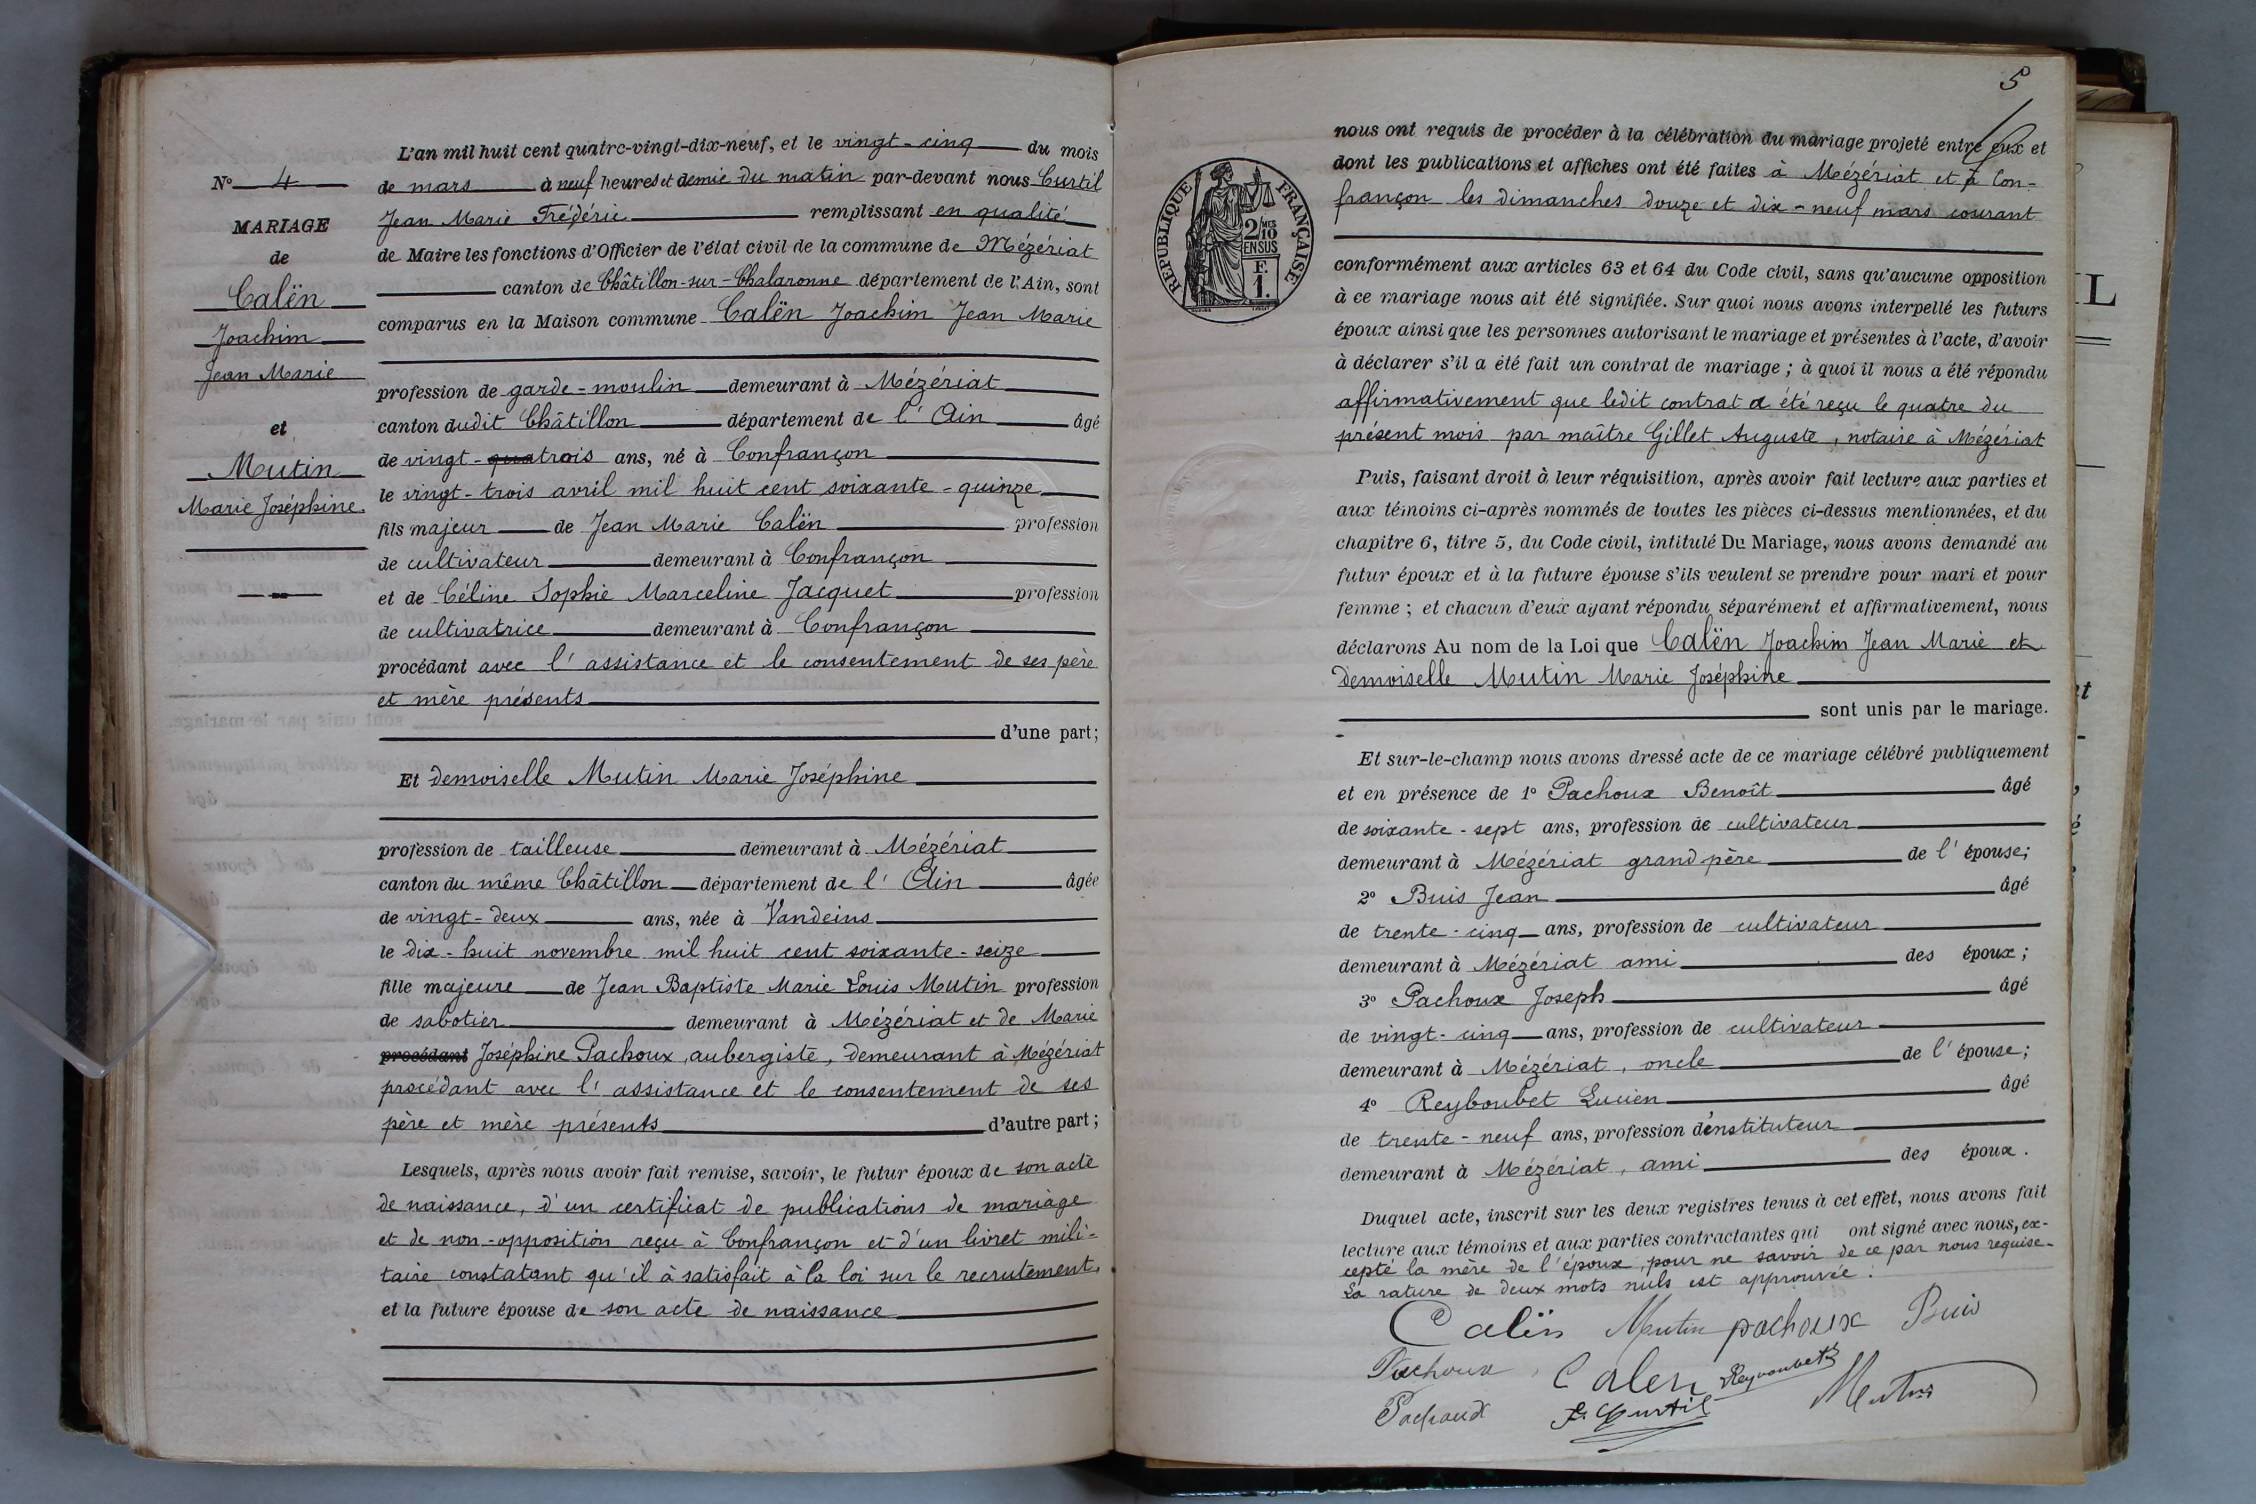 N° 4
MARIAGE
de
Calën
Joachim
Jean Marie
et
Mutin
Marie Joséphine.
L'an mil huit cent quatre-vingt-dix-neuf, et le vingt-cinq du mois
de mars à neuf heures et demie du matin par-devant nous Curtil
Jean Marie Frédéric remplissant en qualité
de Maire les fonctions d'Officier de l'état civil de la commune de Mézériat
canton de Châtillon-sur-Chalaronne département de l'Ain, sont
comparus en la Maison commune Calën Joachim Jean Marie
profession de garde-moulin demeurant à Mézériat
canton dudit Châtillon département de l'Ain âgé
de vingt-quatrois ans, né à Confrançon
le vingt-trois avril mil huit cent soixante-quinze
fils majeur de Jean Marie Calën profession
de cultivateur demeurant à Confrançon
et de Céline Sophie Marceline Jacquet profession
de cultivatrice demeurant à Confrançon
procédant avec l'assistance et le consentement de ses père
et mère présents
d'une part;
Et demoiselle Mutin Marie Joséphine
profession de tailleuse demeurant à Mézériat
canton du même Châtillon département de l'Ain âgée
de vingt-deux ans, née à Vandeins
le dix-huit novembre mil huit cent soixante-seize
fille majeure de Jean Baptiste Marie Louis Mutin profession
de sabotier demeurant à Mézériat et de Marie
procédant Joséphine Pachoux, aubergiste, demeurant à Mézériat
procédant avec l'assistance et le consentement de ses
père et mère présents d'autre part;
Lesquels, après nous avoir fait remise, savoir, le futur époux de son acte
de naissance, d'un certificat de publications de mariage
et de non-opposition reçu à Confrançon et d'un livret mili-
taire constatant qu'il à satisfait à la loi sur le recrutement,
et la future épouse de son acte de naissance
5
REPUBLIQUE FRANÇAISE
2/10 MES
EN SUS
F.
1.
nous ont requis de procéder à la célébration du mariage projeté entre eux et
dont les publications et affiches ont été faites à Mézériat et à Con-
françon les dimanches douze et dix-neuf mars courant
conformément aux articles 63 et 64 du Code civil, sans qu'aucune opposition
à ce mariage nous ait été signifiée. Sur quoi nous avons interpellé les futurs
époux ainsi que les personnes autorisant le mariage et présentes à l'acte, d'avoir
à déclarer s'il a été fait un contrat de mariage; à quoi il nous a été répondu
affirmativement que ledit contrat a été reçu le quatre du
présent mois par maître Gillet Auguste, notaire à Mézériat
Puis, faisant droit à leur réquisition, après avoir fait lecture aux parties et
aux témoins ci-après nommés de toutes les pièces ci-dessus mentionnées, et du
chapitre 6, titre 5, du Code civil, intitulé Du Mariage, nous avons demandé au
futur époux et à la future épouse s'ils veulent se prendre pour mari et pour
femme; et chacun d'eux ayant répondu séparément et affirmativement, nous
déclarons Au nom de la Loi que Calën Joachim Jean Marie et
demoiselle Mutin Marie Joséphine
sont unis par le mariage.
Et sur-le-champ nous avons dressé acte de ce mariage célébré publiquement
et en présence de 1° Pachoux Benoît âgé
de soixante-sept ans, profession de cultivateur
demeurant à Mézériat grand père de l'épouse;
2° Buis Jean âgé
de trente-cinq ans, profession de cultivateur
demeurant à Mézériat ami des époux;
3° Pachoux Joseph âgé
de vingt-cinq ans, profession de cultivateur
demeurant à Mézériat, oncle de l'épouse;
4° Reyboubet Lucien âgé
de trente-neuf ans, profession d'instituteur
demeurant à Mézériat, ami des époux.
Duquel acte, inscrit sur les deux registres tenus à cet effet, nous avons fait
lecture aux témoins et aux parties contractantes qui ont signé avec nous, ex-
cepté la mère de l'époux, pour ne savoir de ce par nous requise-
La rature de deux mots nuls est approuvée.
Calën Mutin pachoux Buis
Pachoux Calen Reyboubet
Pachoux F. Curtil Mutin